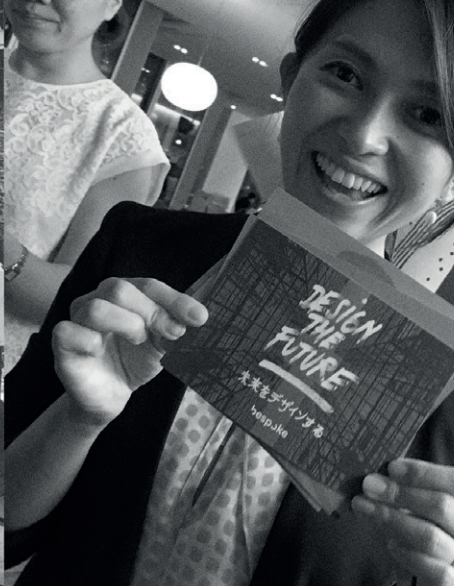 DESIGN
THE
FUTURE
未来をデザインする
bespoke